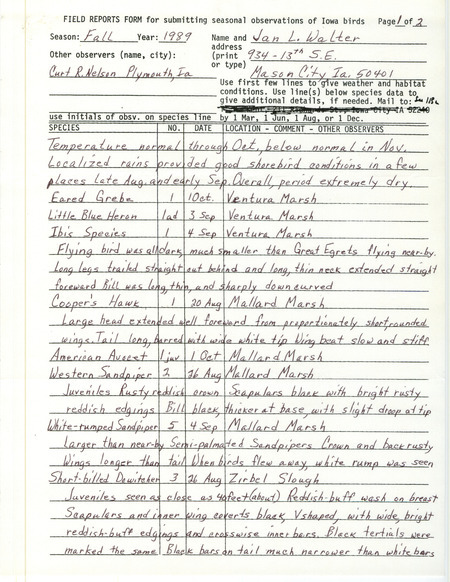 FIELD REPORTS FORM for submitting seasonal observations of Iowa birds Page 1 of 2
Season: Fall Year: 1989 Name and Jan L. Walter
address
Other observers (name, city): (print 934-13th S.E.
or type)
Curt R. Nelson Plymouth, Ia Mason City Ia. 50401
Use first few lines to give weather and habitat
conditions. Use line(s) below species data to
give additional details, if needed. Mail to:
Iowa City IA 52240
use initials of obsv. on species line by 1 Mar, 1 Jun, 1 Aug, or 1 Dec.
SPECIES NO. DATE LOCATION - COMMENT - OTHER OBSERVERS
Temperature normal through Oct., below normal in Nov.
Localized rains provided good shorebird conditions in a few
places late Aug. and early Sep. Overall, period extremely dry.
Eared Grebe 1 1 Oct. Ventura Marsh
Little Blue Heron 1ad 3 Sep Ventura Marsh
Ibis Species 1 4 Sep Ventura Marsh
Flying bird was all dark, much smaller than Great Egrets flying near-by.
Long legs trailed straight out behind and long, thin neck extended straight
foreward Bill was long, thin, and sharply down curved
Cooper's Hawk 1 20 Aug Mallard Marsh
Large head extended well foreward from proportionately short, rounded
wings. Tail long, barred with wide white tip Wing beat slow and stiff
American Avocet 1 juv 1 Oct Mallard Marsh
Western Sandpiper 2 26 Aug Mallard Marsh
Juveniles Rusty reddish crown Scapulars black with bright rusty
reddish edgings Bill black, thicker at base, with slight droop at tip
White-rumped Sandpiper 5 4 Sep Mallard Marsh
Larger than near-by Semi-palmated Sandpipers Crown and back rusty
Wings longer than tail When birds flew away, white rump was seen
Short-billed Dowitcher 3 26 Aug Zirbel Slough
Juveniles seen as close as 40 feet (about) Reddish-buff wash on breast
Scapulars and inner wing coverts black, V shaped, with wide, bright
reddish-buff edgings and crosswise inner bars. Black tertials were
marked the same Black bars on tail much narrower than white bars